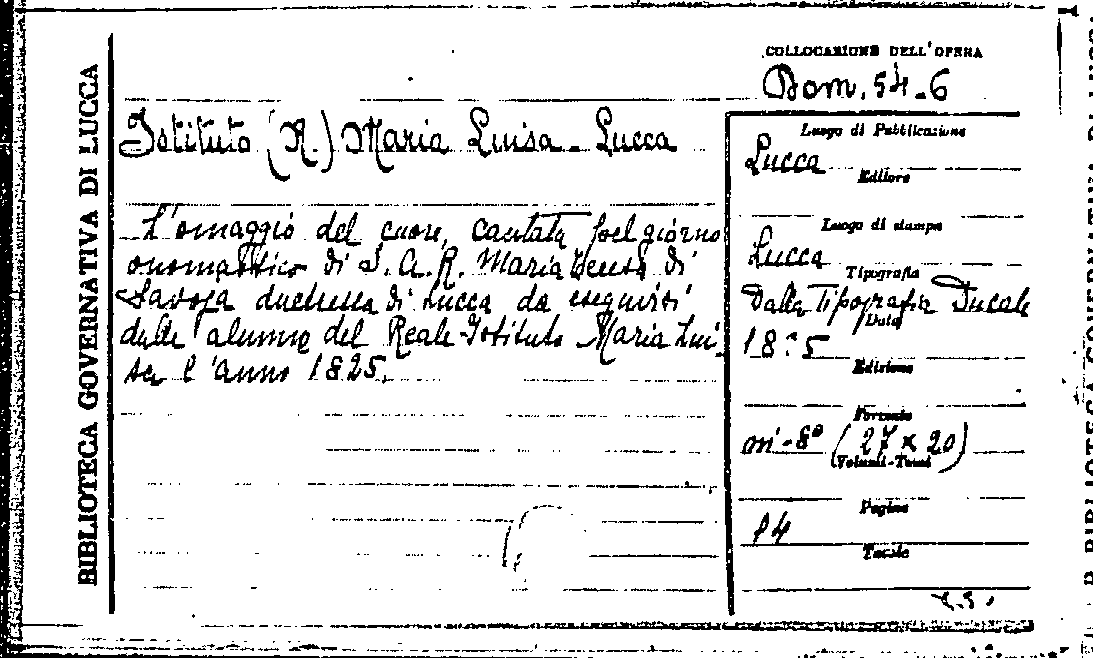 BIBLIOTECA GOVERNATIVA DI LUCCA
COLLOCAZIONE DELL'OPERA
Dom. 54-6
Istituto (R.) Maria Luisa - Lucca
L'omaggio del cuore, cantata pel giorno
onomastico di S. A. R. Maria Teresa di
Savoja duchessa di Lucca da eseguirsi
dalle alunne del Reale Istituto Maria Lui-
sa l'anno 1825.
Luogo di Pubblicazione
Lucca
Editore
Luogo di stampa
Lucca
Tipografia
Dalla Tipografia Ducale
Data
Edizione
Formato
in-8° (27 x 20)
Volumi-Tomi
Pagine
14
Tavole